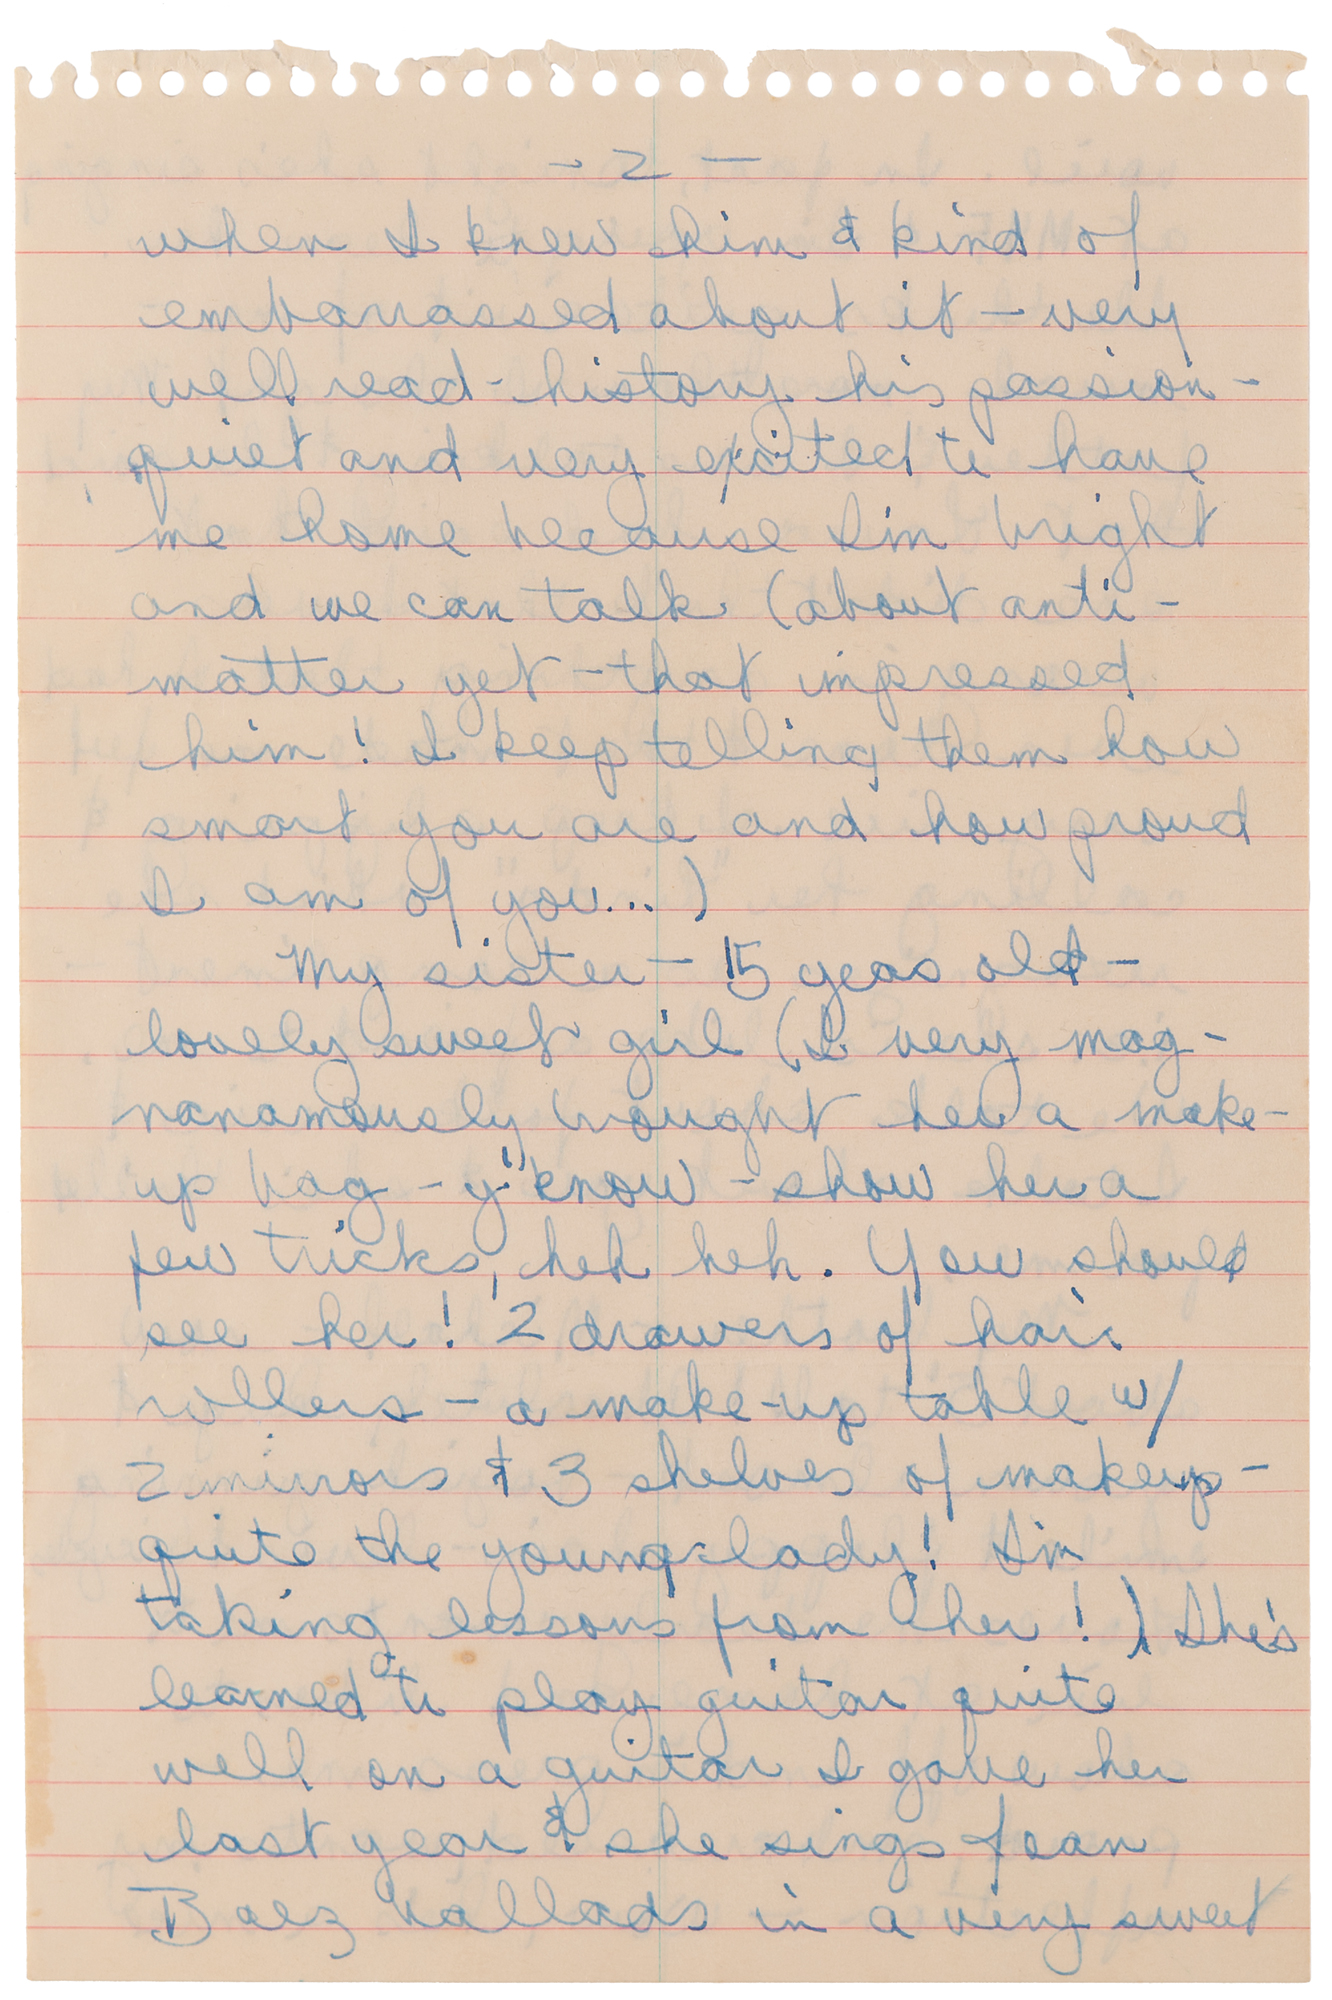 - 2 -
when I knew him & kind of
embarrassed about it - very
well read - history his passion -
quiet and very excited to have
me home because I'm bright
and we can talk (about anti-
matter yet - that impressed
him! I keep telling them how
smart you are and how proud
I am of you...)
My sister - 15 years old -
lovely sweet girl (I very mag-
nanamously brought her a make-
up bag - y'know - show her a
few tricks, heh heh. You should
see her! 2 drawers of hair
rollers - a make-up table w/
2 mirrors & 3 shelves of makeup -
quite the young lady! I'm
taking lessons from her!) She's
learned to play guitar quite
well on a guitar I gave her
last year & she sings Joan
Baez ballads in a very sweet